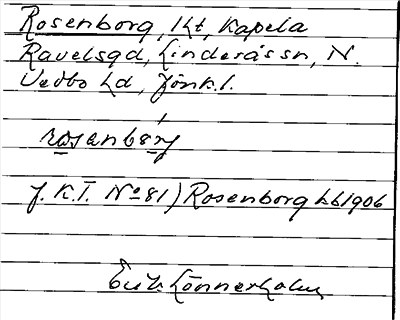 Rosenborg, Lt, Kapela
Ravelsgd, Linderås sn, N.
Vedbo hd, Jönk. l.
rosenbärj
J. K. I. No 81) Rosenborg hb 1906
Erik Lönnerholm